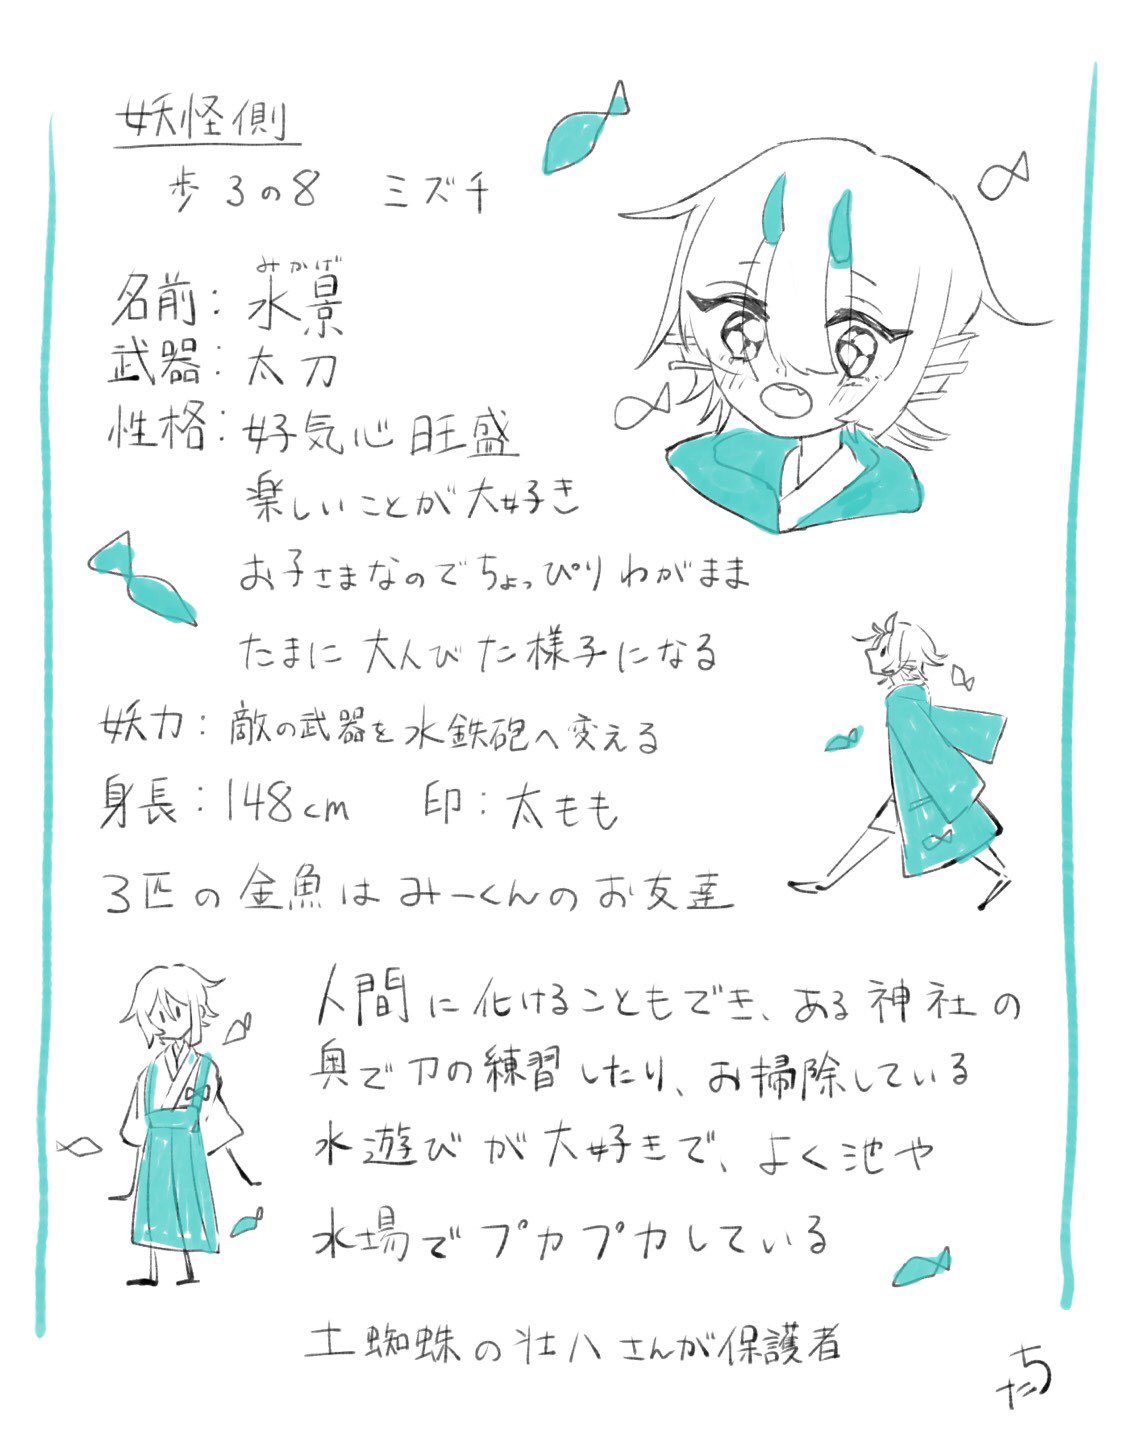 妖怪側
歩3の8 ミズチ
みかげ
名前：水景
武器：太刀
性格：好気心旺盛
楽しいことが大好き
お子さまなのでちょっぴりわがまま
たまに大人びた様子になる
妖力：敵の武器を水鉄砲へ変える
身長：148cm 印：太もも
3匹の金魚はみーくんのお友達
人間に化けることもでき、ある神社の
奥で刀の練習したり、お掃除している
水遊びが大好きで、よく池や
水場でプカプカしている
土蜘蛛の壮八さんが保護者